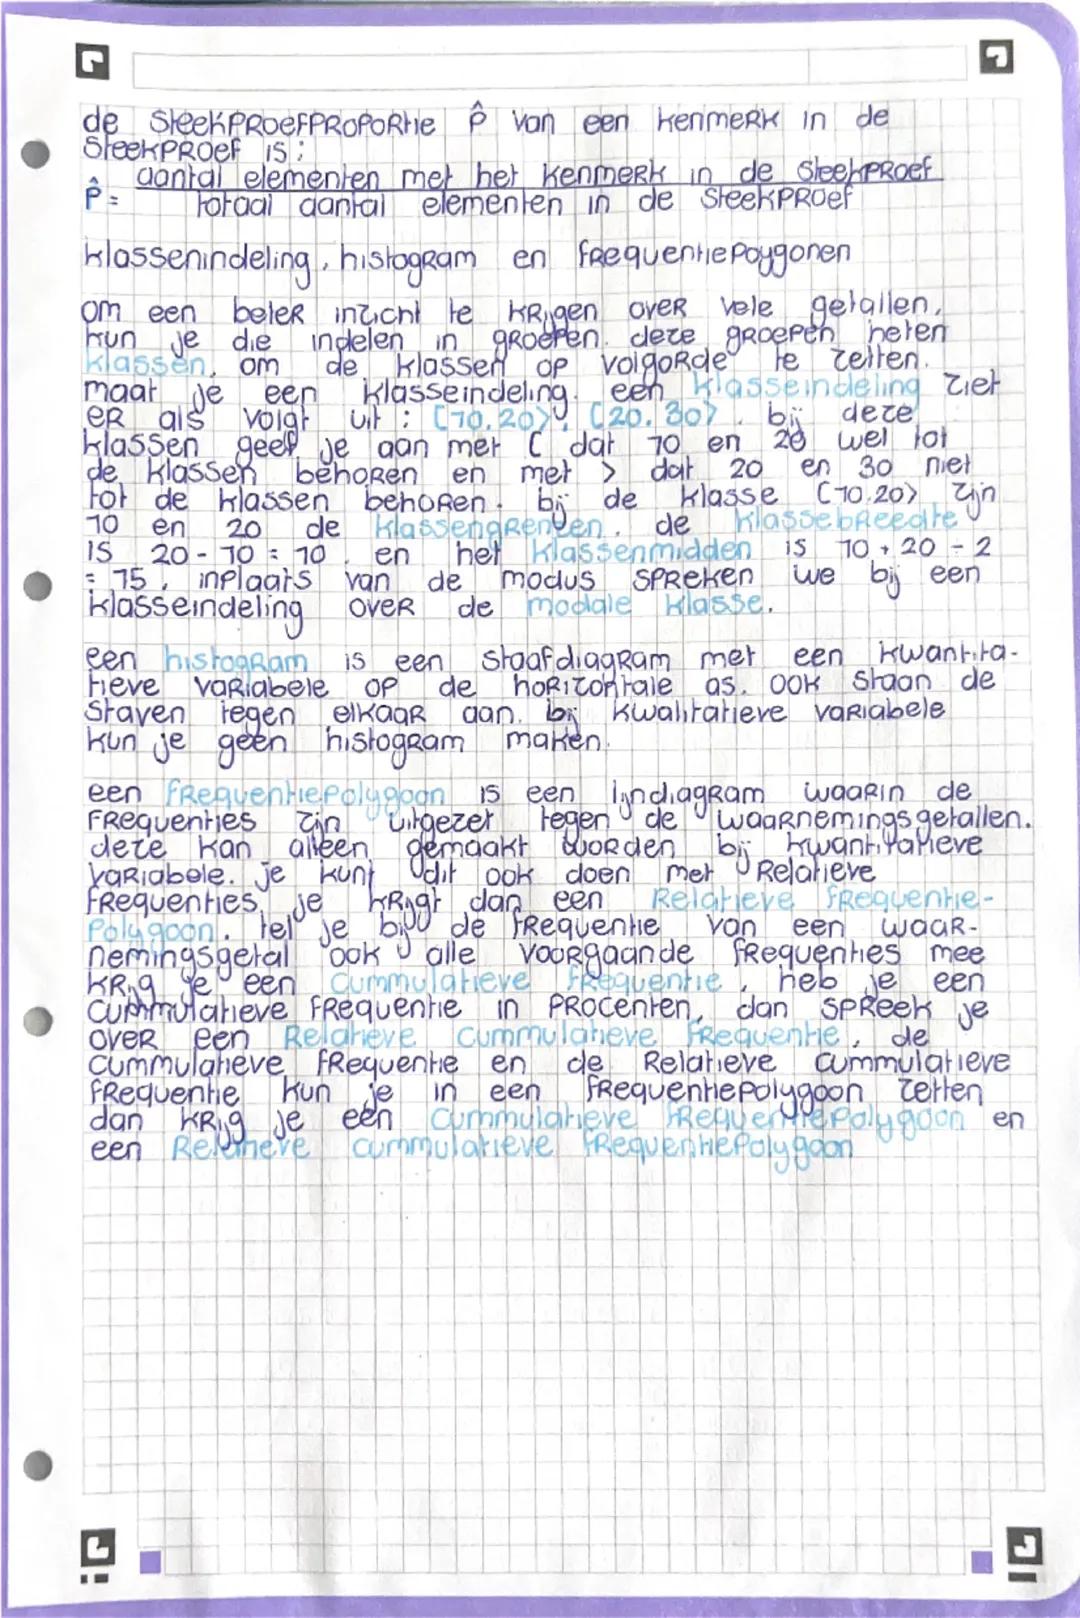 de steekproefproportie p̂ van een kenmerk in de
steekproef is:
p̂ = aantal elementen met het kenmerk in de steekproef
totaal aantal elementen in de steekproef
klassenindeling, histogram en frequentiepoygonen
om een beter inzicht te krijgen over vele getallen,
kun je die indelen in groepen. deze groepen heten
klassen, om de klassen op volgorde te zetten.
maat je een klasseindeling. een klasseindeling ziet
er als volgt uit: [10.20>, [20.30>. bij deze
klassen geef je aan met [ dat 10 en 20 wel tot
de klassen behoren en met > dat 20 en 30 niet
tot de klassen behoren. bij de klasse [10.20> zijn
10 en 20 de klassengrenzen. de klassebreedte
is 20 - 10 = 10. en het klassenmidden is 10 + 20 - 2
= 15, inplaats van de modus spreken we bij een
klasseindeling over de modale klasse.
een histogram is een staafdiagram met een kwantita-
tieve variabele op de horizontale as. ook staan de
staven tegen elkaar aan. bij kwalitatieve variabele
kun je geen histogram maken.
een frequentiepolygoon is een lijndiagram waarin de
frequenties zijn uitgezet tegen de waarnemingsgetallen.
deze kan alleen gemaakt worden bij kwantitatieve
variabele. je kunt dit ook doen met relatieve
frequenties, je krijgt dan een relatieve frequentie-
polygoon. tel je bij de frequentie van een waar-
nemingsgetal ook alle voorgaande frequenties mee
krijg je een cummulatieve frequentie, heb je een
cummulatieve frequentie in procenten, dan spreek je
over een relatieve cummulatieve frequentie, de
cummulatieve frequentie en de relatieve cummulatieve
frequentie kun je in een frequentiepolygoon zetten
dan krijg je een cummulatieve frequentiepolygoon en
een relatieve cummulatieve frequentiepolygoon